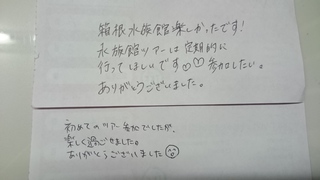 箱根水族館楽しかったです!
水族館ツアーは定期的に
行ってほしいです♡♡参加したい。
ありがとうございました。
初めてのツアー参加でしたが、
楽しく過ごせました。
ありがとうございました☺